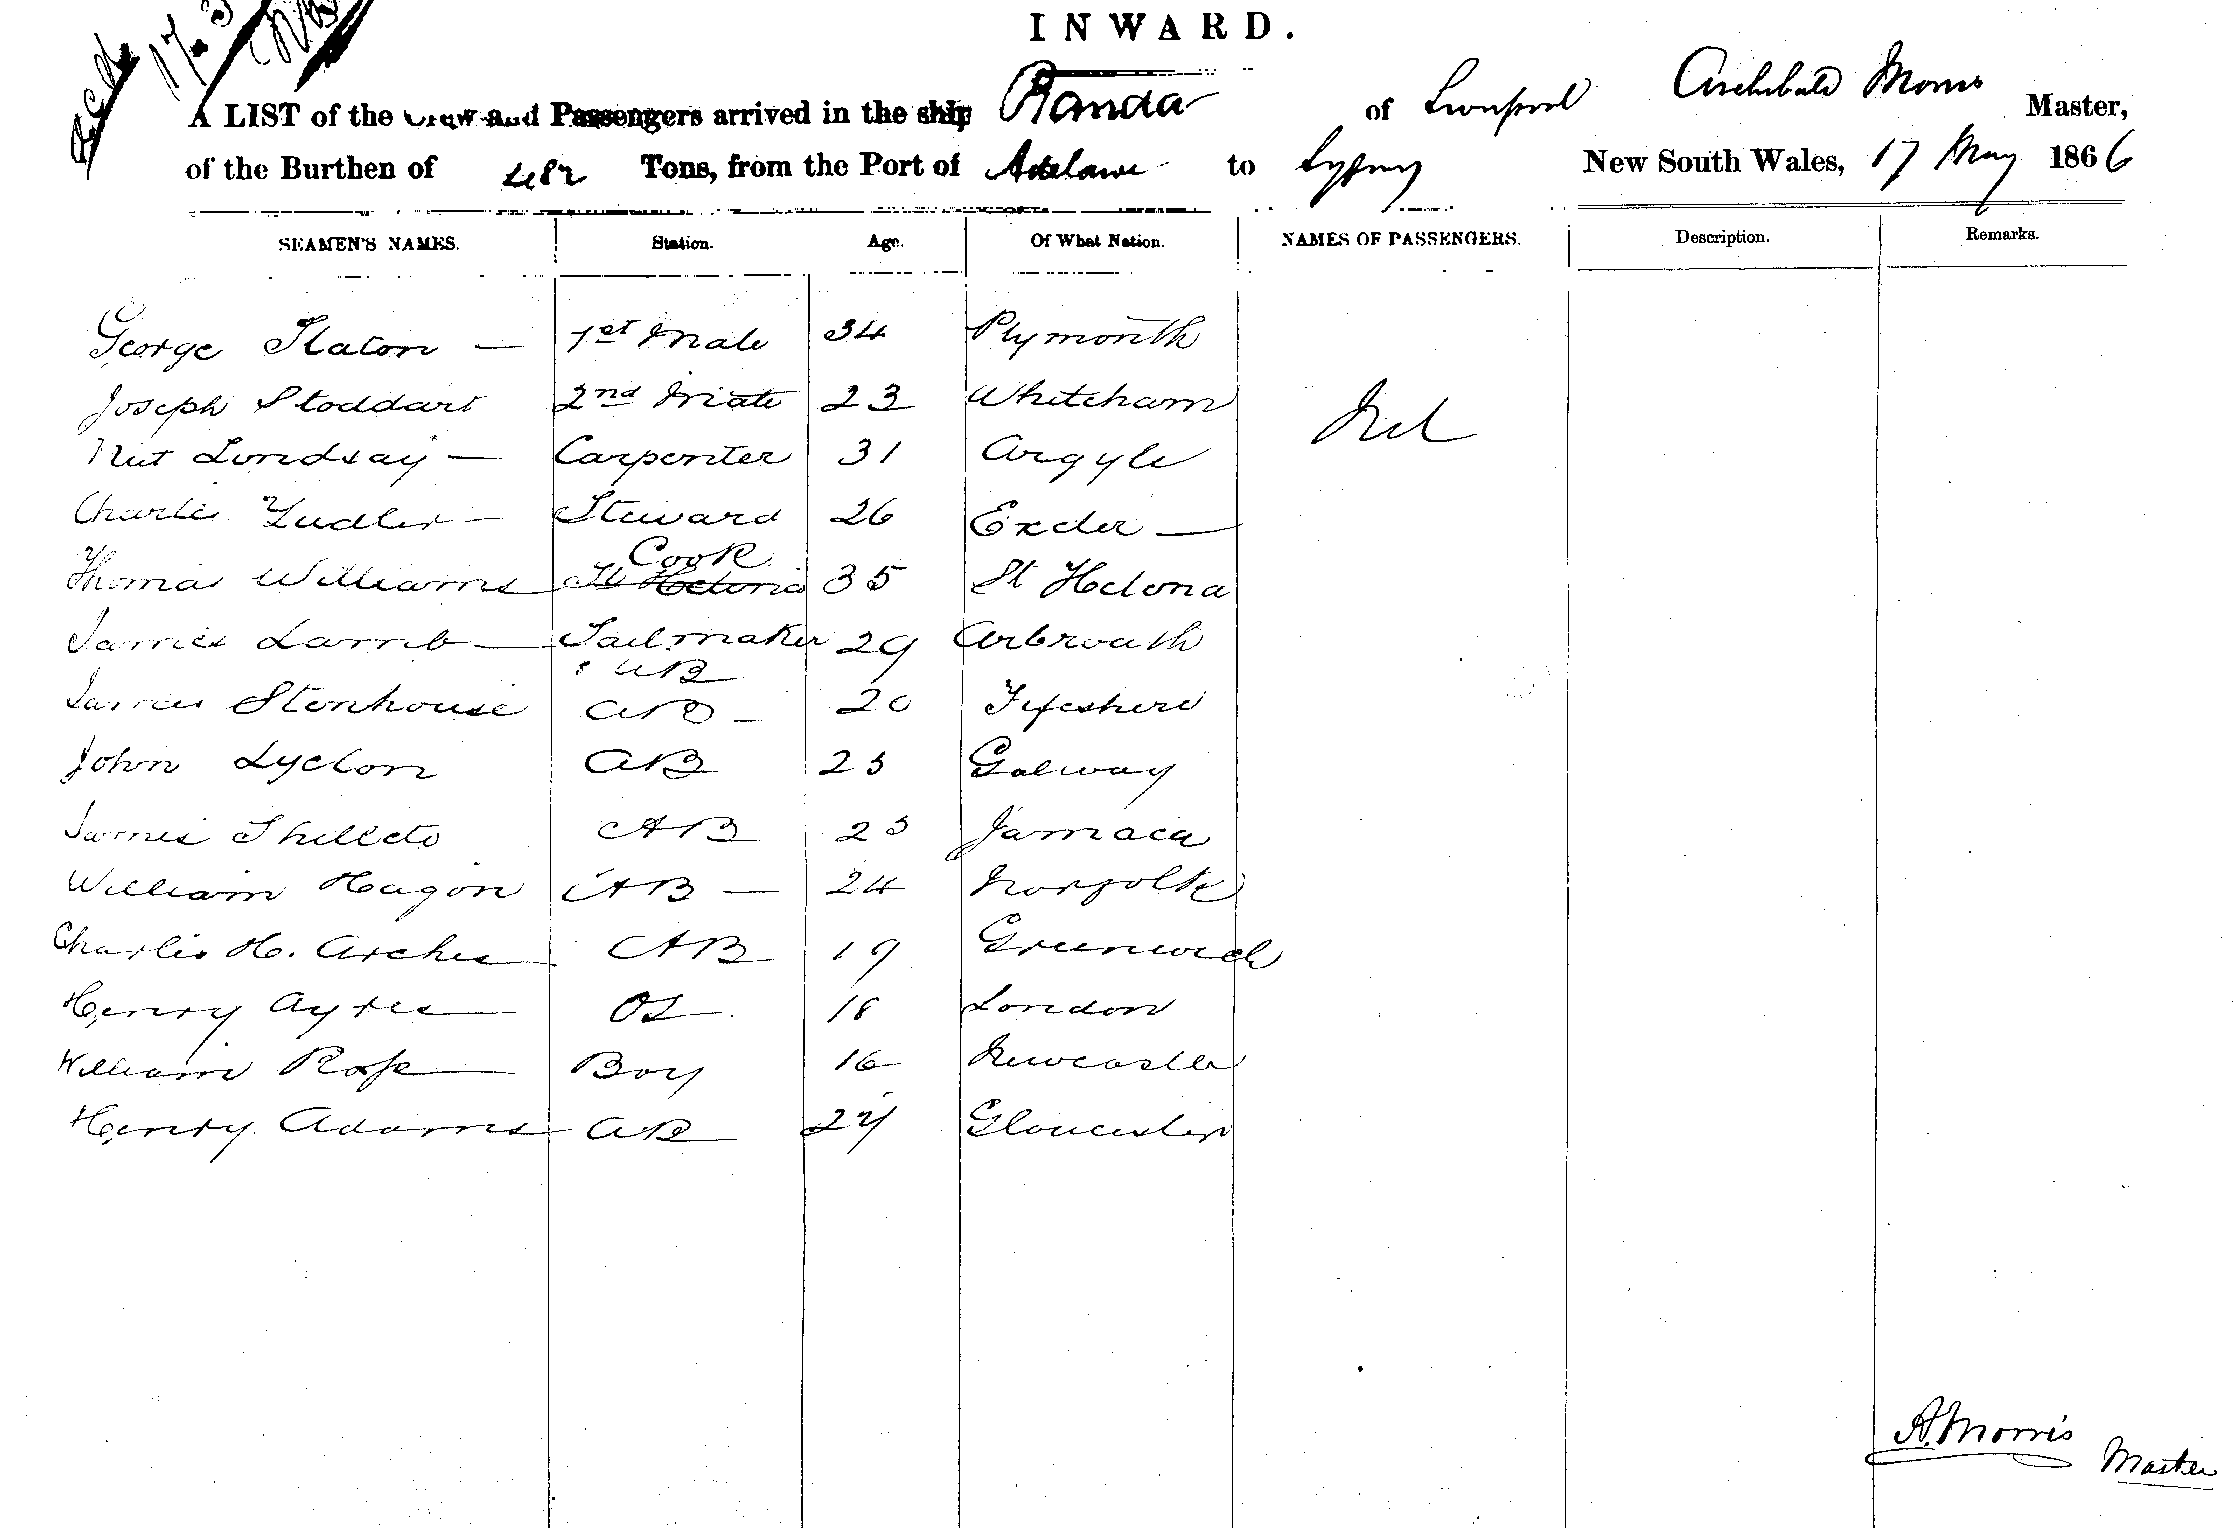 INWARD.
A LIST of the Crew and Passengers arrived in the ship Randa of Liverpool Archibald Morris Master,
of the Burthen of 482 Tons, from the Port of Adelaide to Sydney New South Wales, 17 May 1866
SEAMEN'S NAMES. Station. Age. Of What Nation. NAMES OF PASSENGERS. Description. Remarks.
George Slaton — 1st Mate 34 Plymouth
Joseph Stoddart 2nd Mate 23 Whiteham
Lindsay — Carpenter 31 Argyle
Nil
Charles — Steward 26 Exeter —
Cook
Thomas Williams St Helena 35 St Helena
James Lamb — Sailmaker 29 Arbroath
& AB
James Stenhouse AB — 20 Fifeshire
John AB 25 Galway
James Shilleto AB 23 Jamaca
William Hagon AB — 24 Norfolk
Charles H. Archer AB 19 Greenwich
Henry Ayres OS 18 London
William Rose Boy 16 Newcastle
Henry Adams AB 24 Gloucester
A. Morris
Master